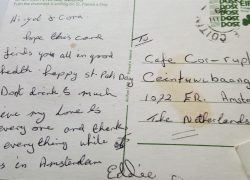 Hope this card
finds you all in good
health happy St. Pats Day
Dont drink to much
Give my Love to
every one and thank
everything while
in Amsterdam
Eddie
To
Cafe Cor-rup
Ceintuurbaan
1072 ER. Ams
The Netherlands